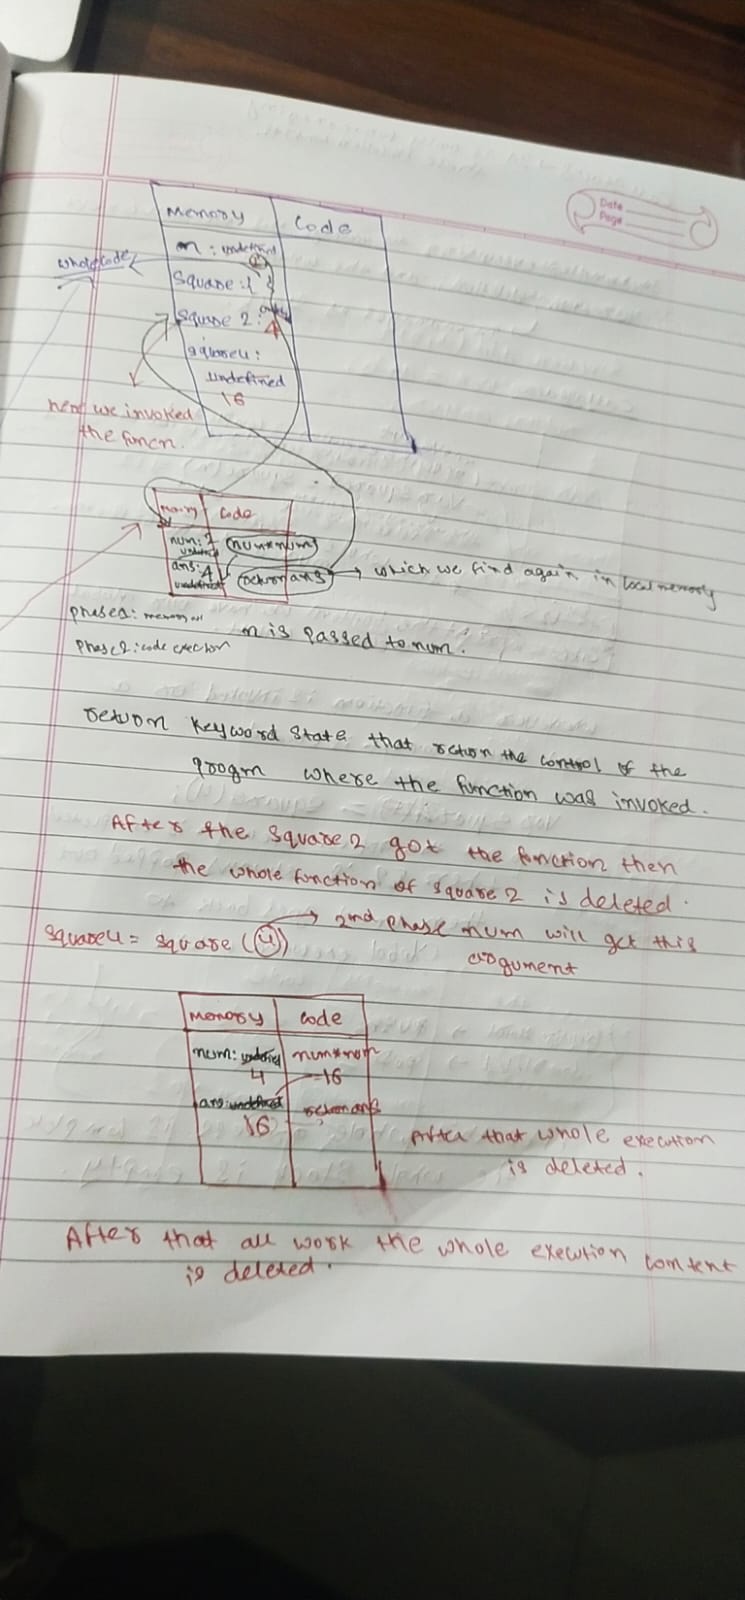 Date
Page
Memory Code
n : undefined
2
whole code
Square : { }
Square 2 :
4
square4 :
undefined
16
here we invoked
the funcn.
Code
num: 2 num*num
undefined
ans: 4 return ans → which we find again in local memory
undefined
n is passed to num.
Phase 2: code
return keyword state that return the control of the
progm where the function was invoked.
After the square 2 got the function then
the whole function of square 2 is deleted.
square4 = square (4) → 2nd phase num will get this
argument
Memory Code
num: undefined num*num
4 16
ans: undefined return ans
16
After that whole execution
is deleted.
After that all work the whole execution content
is deleted.